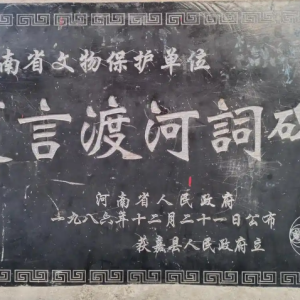 南省文物保护单位
言渡河詞碑
河南省人民政府
一九八六年十二月二十一日公布
获嘉县人民政府立